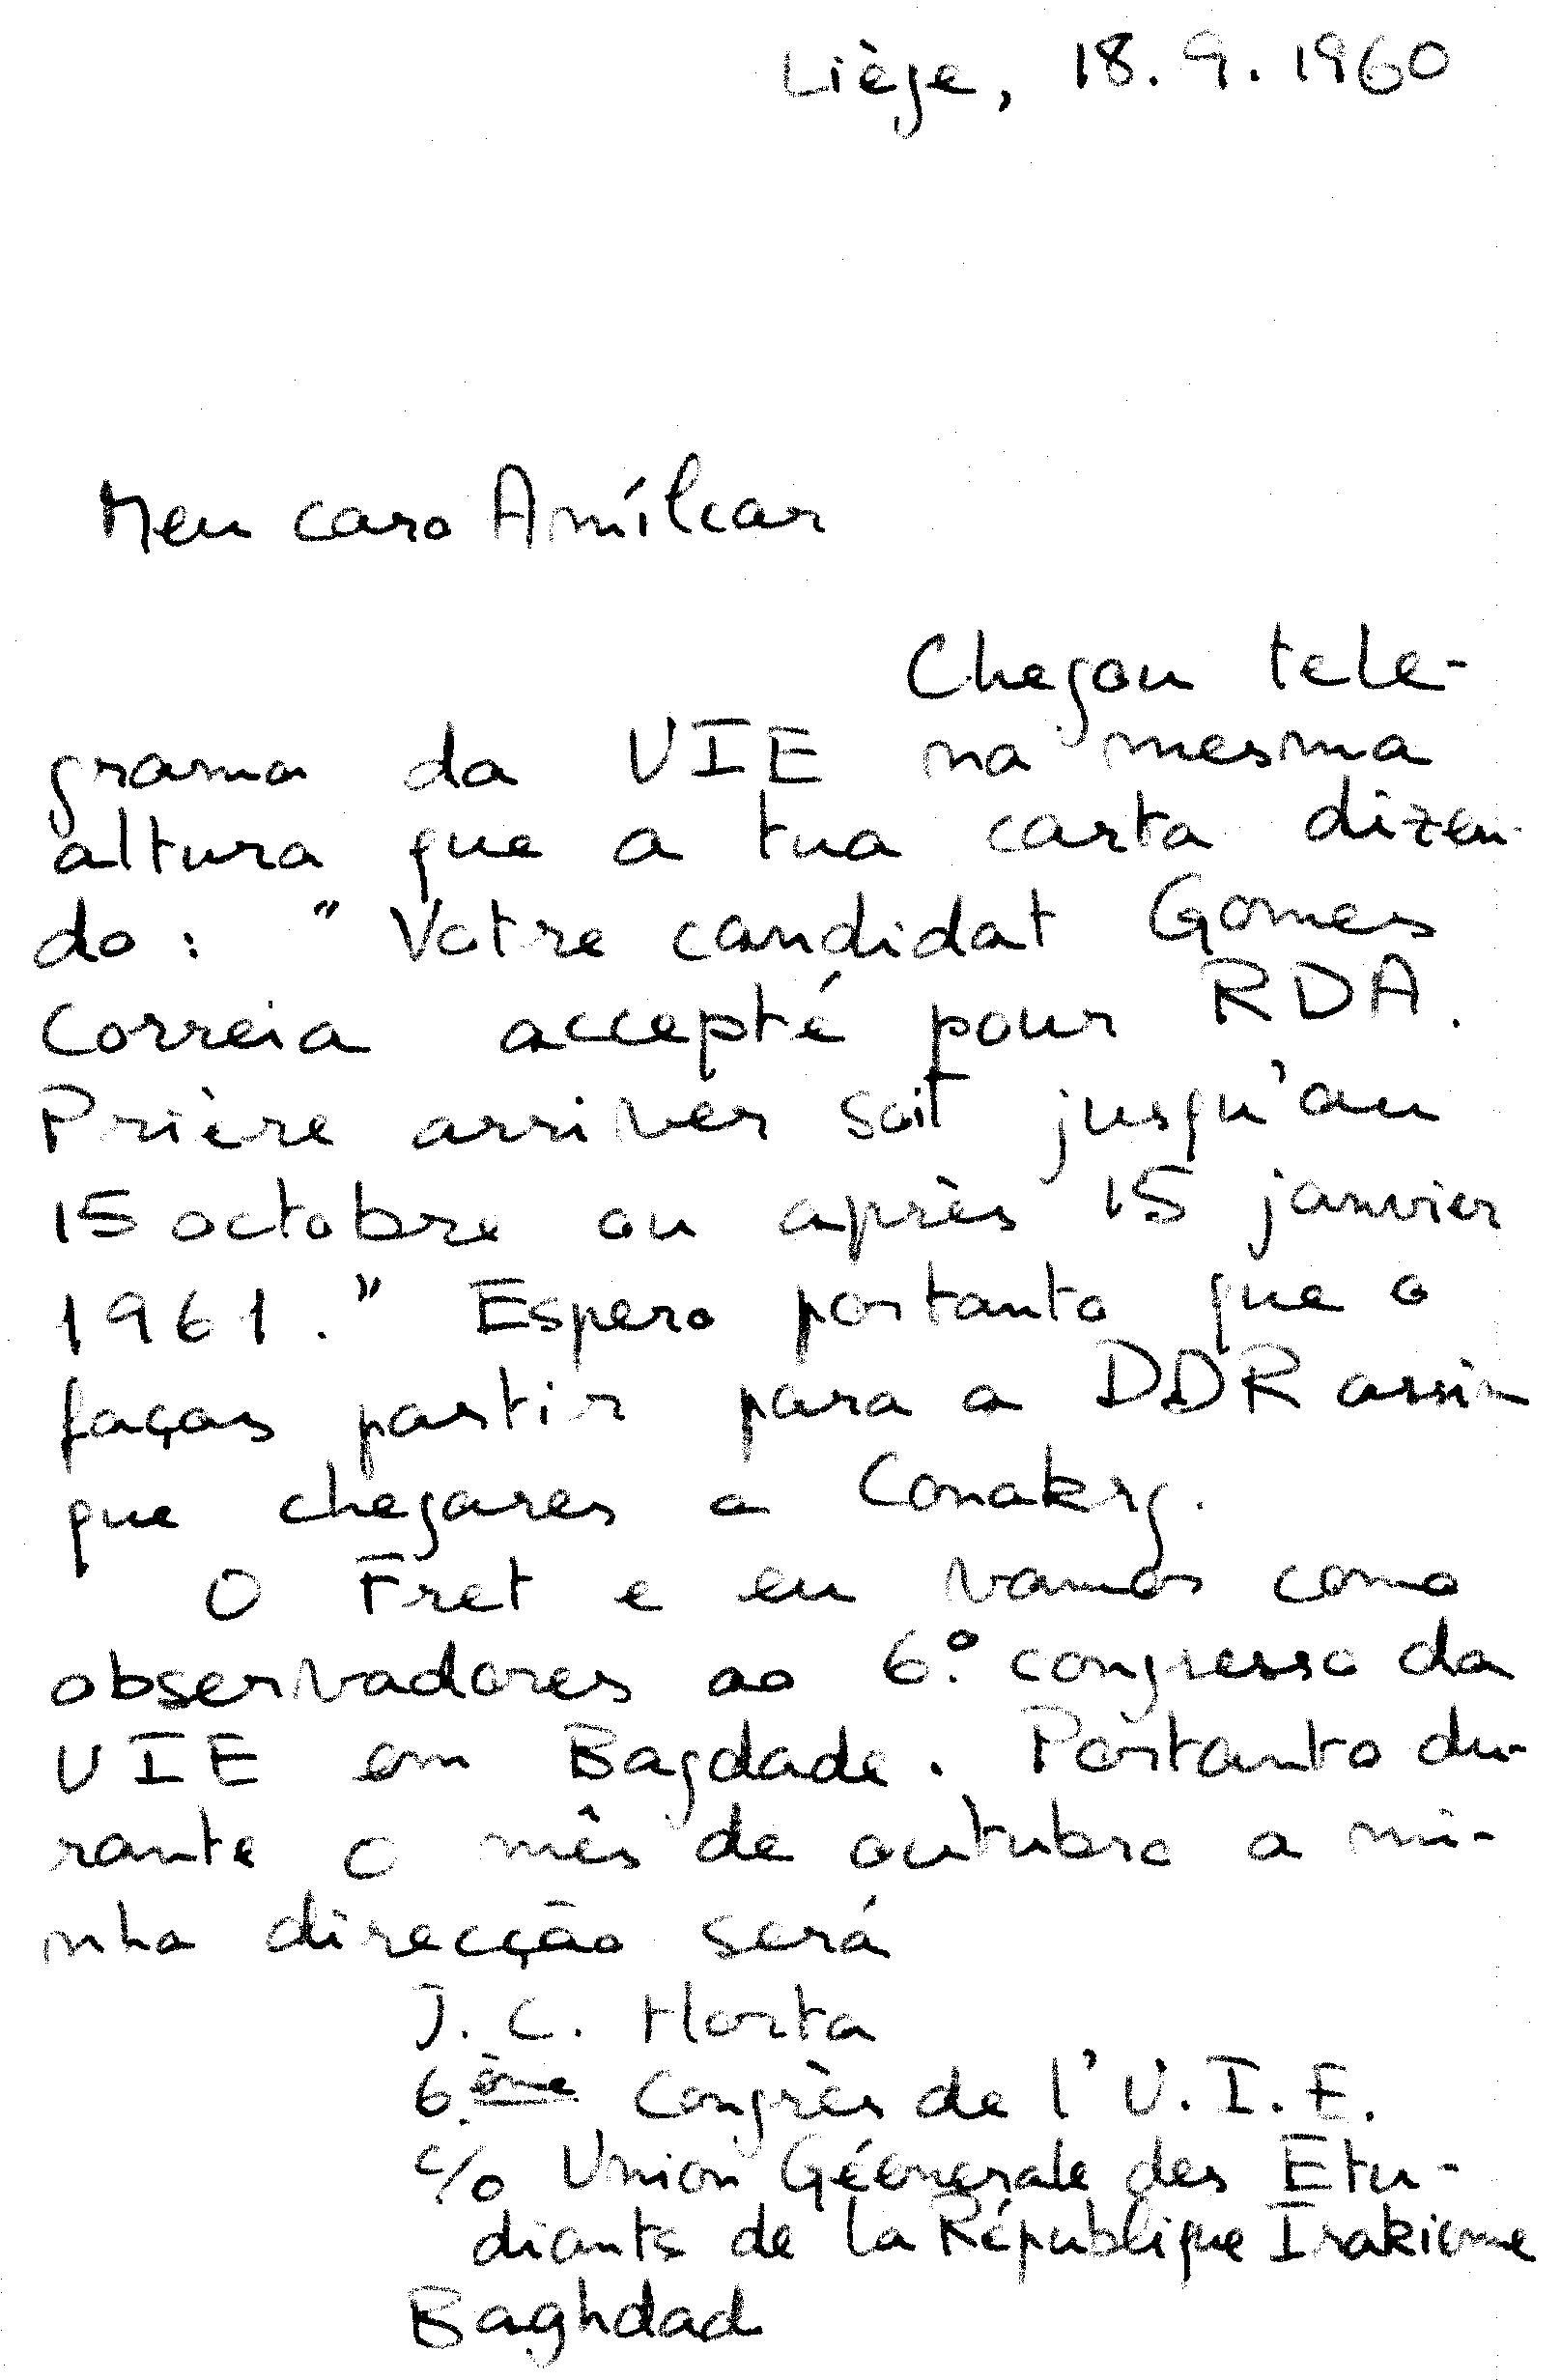 Liège, 18. 9. 1960
Meu caro Amílcar
Chegou tele-
grama da UIE na mesma
altura que a tua carta dizen-
do: "Votre candidat Gomes
Correia accepté pour RDA.
Prière arriver soit jusqu'au
15 octobre ou après 15 janvier
1961." Espero portanto que o
faças partir para a DDR assim
que chegares a Conakry.
O Fret e eu vamos como
observadores ao 6.º congresso da
UIE em Bagdade. Portanto du-
rante o mês de outubro a mi-
nha direcção será
J. C. Horta
6.ème Congrès de l'U.I.E.
c/o Union Géenerale des Etu-
diants de la République Irakienne
Baghdad